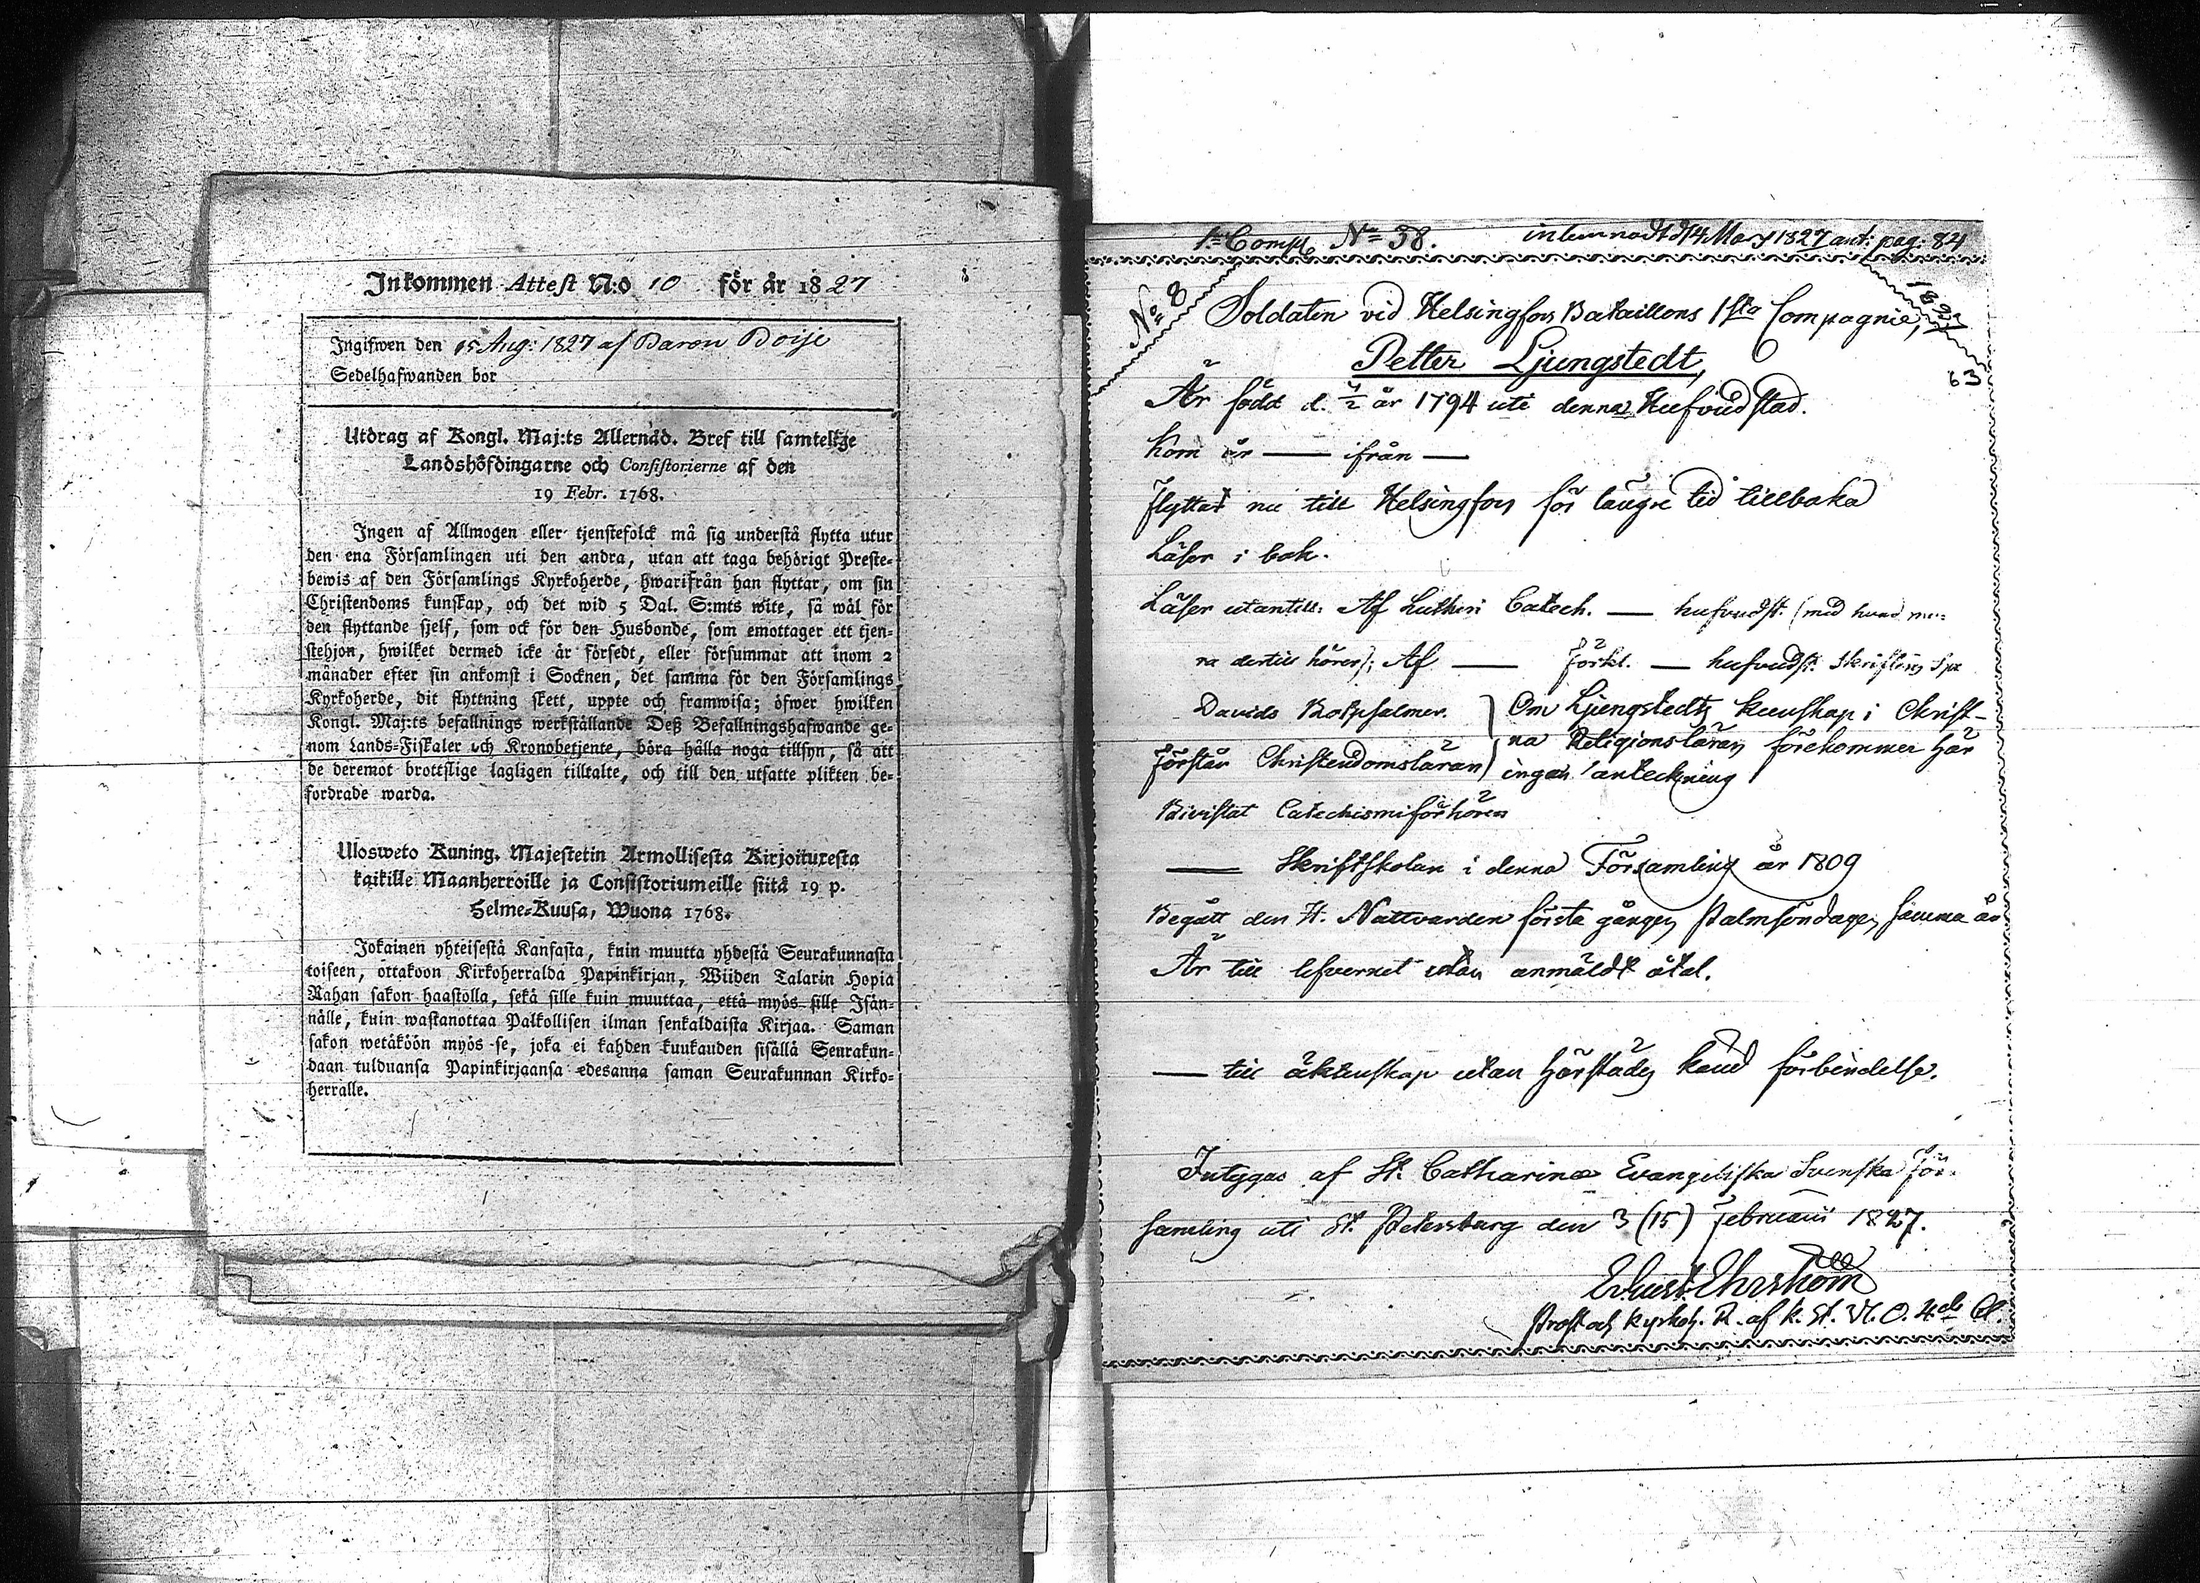 Inkommen Attest N:o 10 för år 1827
Ingifwen den 15 Aug: 1827 af Baron Boije
Sedelhafwanden bor
Utdrag af Kongl. Maj:ts Allernåd. Bref till samtelige
Landshöfdingarne och Consistorierne af den
19 Febr. 1768.
Ingen af Allmogen eller tjenstefolck må sig understå flytta utur
den ena Församlingen uti den andra, utan att taga behörigt Preste-
bewis af den Församlings Kyrkoherde, hwarifrån han flyttar, om sin
Christendoms kunskap, och det wid 5 Dal. S:mts wite, så wäl för
den flyttande sjelf, som ock för den Husbonde, som emottager ett tjen-
stehjon, hwilket dermed icke är försedt, eller försummar att inom 2
månader efter sin ankomst i Socknen, det samma för den Församlings
Kyrkoherde, dit flyttning skett, uppte och framwisa; öfwer hwilken
Kongl. Maj:ts befallnings werkställande Deß Befallningshafwande ge-
nom Lands-Fiskaler och Kronobetjente, böra hålla noga tillsyn, så att
de deremot brottslige lagligen tilltalte, och till den utsatte plikten be-
fordrade warda.
Ulosweto Kuning. Majestetin Armollisesta Kirjoituxesta
kaikille Maanherroille ja Consistoriumeille siitä 19 p.
Helme-Kuusa, Wuona 1768.
Jokainen yhteisestä Kansasta, kuin muutta yhdestä Seurakunnasta
toiseen, ottakoon Kirkoherralda Papinkirjan, Wiiden Talarin Hopia
Rahan sakon haastolla, sekä sille kuin muuttaa, että myös sille Isän-
nälle, kuin wastanottaa Palkollisen ilman senkaldaista Kirjaa. Saman
sakon wetäköön myös se, joka ei kahden kuukauden sisällä Seurakun-
daan tulduansa Papinkirjaansa edesanna saman Seurakunnan Kirko-
herralle.
1:a Comp. No 38. inlemnadt d 14 May 1827 ant: pag: 84
No 8 1827
Soldaten vid Helsingfors Bataillons 1sta Compagnie,
Petter Ljungstedt,
63
Är född d. 4/2 år 1794 uti denna Hufvudstad.
Kom år — ifrån —
Flyttar nu till Helsingfors för längre tid tillbaka
Läser i bok.
Läser utantill: Af Lutheri Catech. — hufvudst. (med hvad me-
ra dertill hörer); Af — Förkl. — hufvudst. Skriftens Spr
Davids Botpsalmer. Om Ljungstedts kunskap i Christ-
Förstår Christendomsläran na Religionsläran förekommer här
ingen anteckning
Bivistat Catechismiförhören
— Skriftskolan i denna Församling år 1809
Begått den H. Nattvarden första gången Palmsöndagen samma år
Är till lefvernet utan anmäldt åtal.
— till äktenskap utan härstädes känd förbindelse.
Intygas af St. Catharinæ Evangeliska Svenska För-
samling uti St. Petersburg den 3 (15) Februarii 1827.
Ehrström
Prost och Kyrkoh. R. af K. St. Wl. O. 4de Cl.